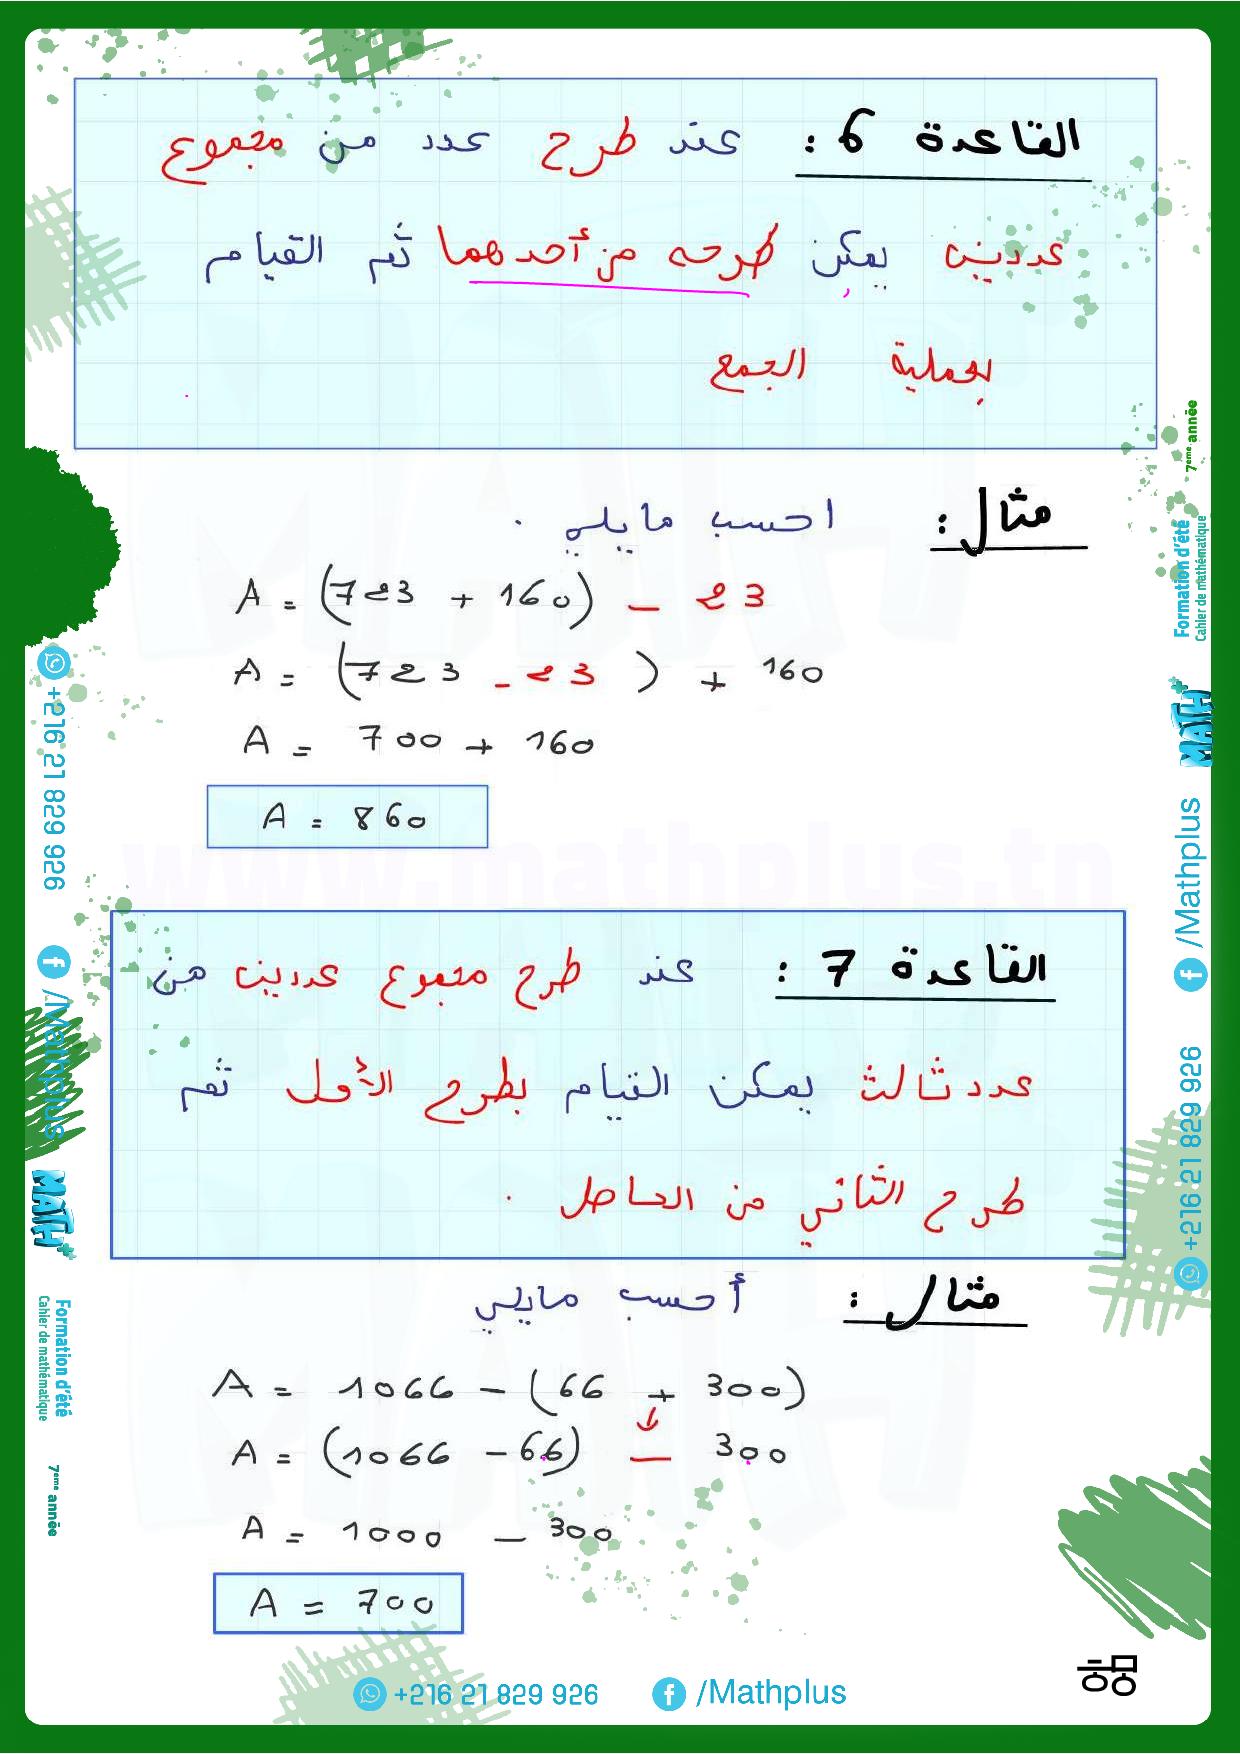 القاعدة 6 : عند طرح عدد من مجموع
عددين يمكن طرحه من أحدهما ثم القيام
بعملية الجمع
مثال : احسب ما يلي .
A = (723 + 160) - 23
A = (723 - 23) + 160
A = 700 + 160
A = 860
www.mathplus.tn
القاعدة 7 : عند طرح مجموع عددين من
عدد ثالث يمكن القيام بطرح الأول ثم
طرح الثاني من الحاصل .
مثال : أحسب ما يلي
A = 1066 - (66 + 300)
A = (1066 - 66) - 300
A = 1000 - 300
A = 700
+216 21 829 926 /Mathplus
+216 21 829 926
/Mathplus
MATH+
Formation d'été
Cahier de mathématique
7ème année
7ème année
Formation d'été
Cahier de mathématique
MATH+
/Mathplus
+216 21 829 926